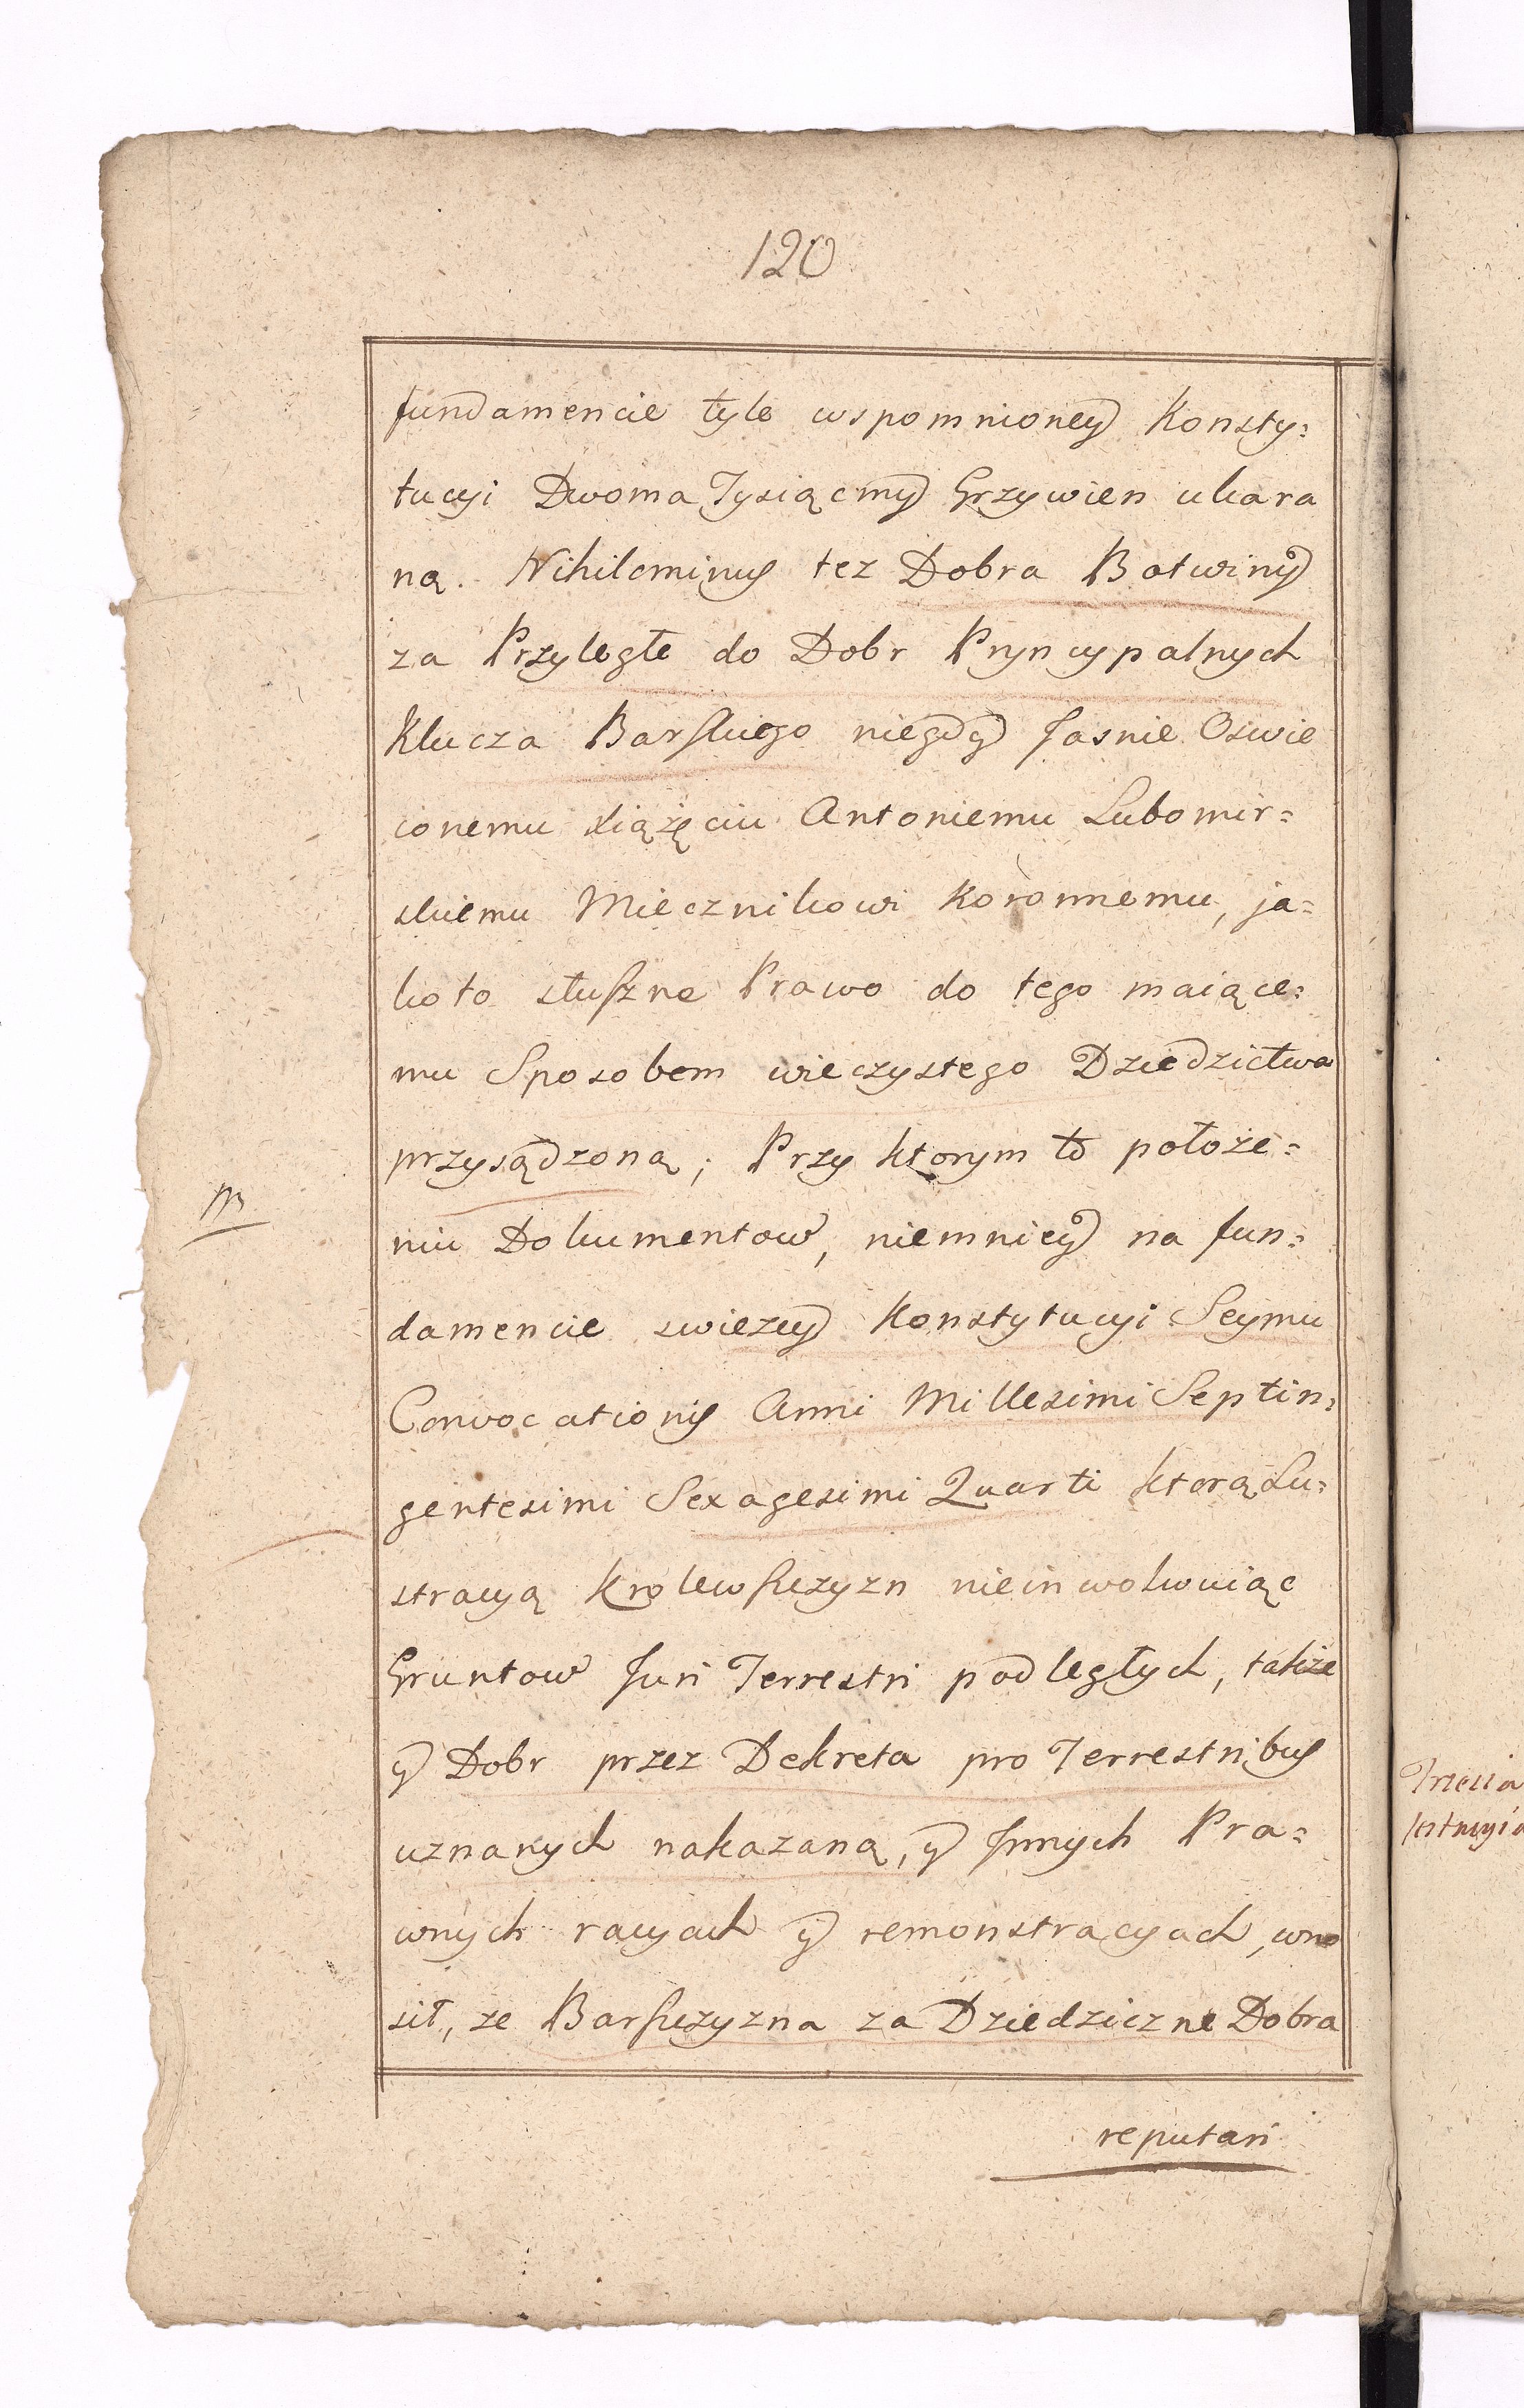 120
fundamencie tyle wspomnioney Konsty:
tucyi Dwoma Tysiącmy Grzywien ukara
ną. Nihilominus tez Dobra Botwiny
za Przyległe do Dobr Pryncypalnych
Klucza Barskiego niegdy Jasnie Oswie
conemu xiążęciu Antoniemu Lubomir=
skiemu Miecznikowi Koronnemu, ja=
koto słuszne Prawo do tego maiące:
mu Sposobem wieczystego Dziedzictwa
przysądzoną; Przy ktorym to położe=
NB
niu Dokumentow, niemniey na fun:
damencie swiezey Konstytucyi Seymu
Convocationis Anni Millesimi Septin:
gentesimi Sexagesimi Quarti ktorą Lu:
stracyą Krolewszczyzn nieinwolwuiąc
Gruntow Juri Terrestri podległych, także
y Dobr przez Dekreta pro Terrestribus
uznanych nakazaną, y Innych Pra=
wnych racyach y remonstracyach, wno
sił, ze Barszczyzna za Dziedziczne Dobra
reputari
Trzecia